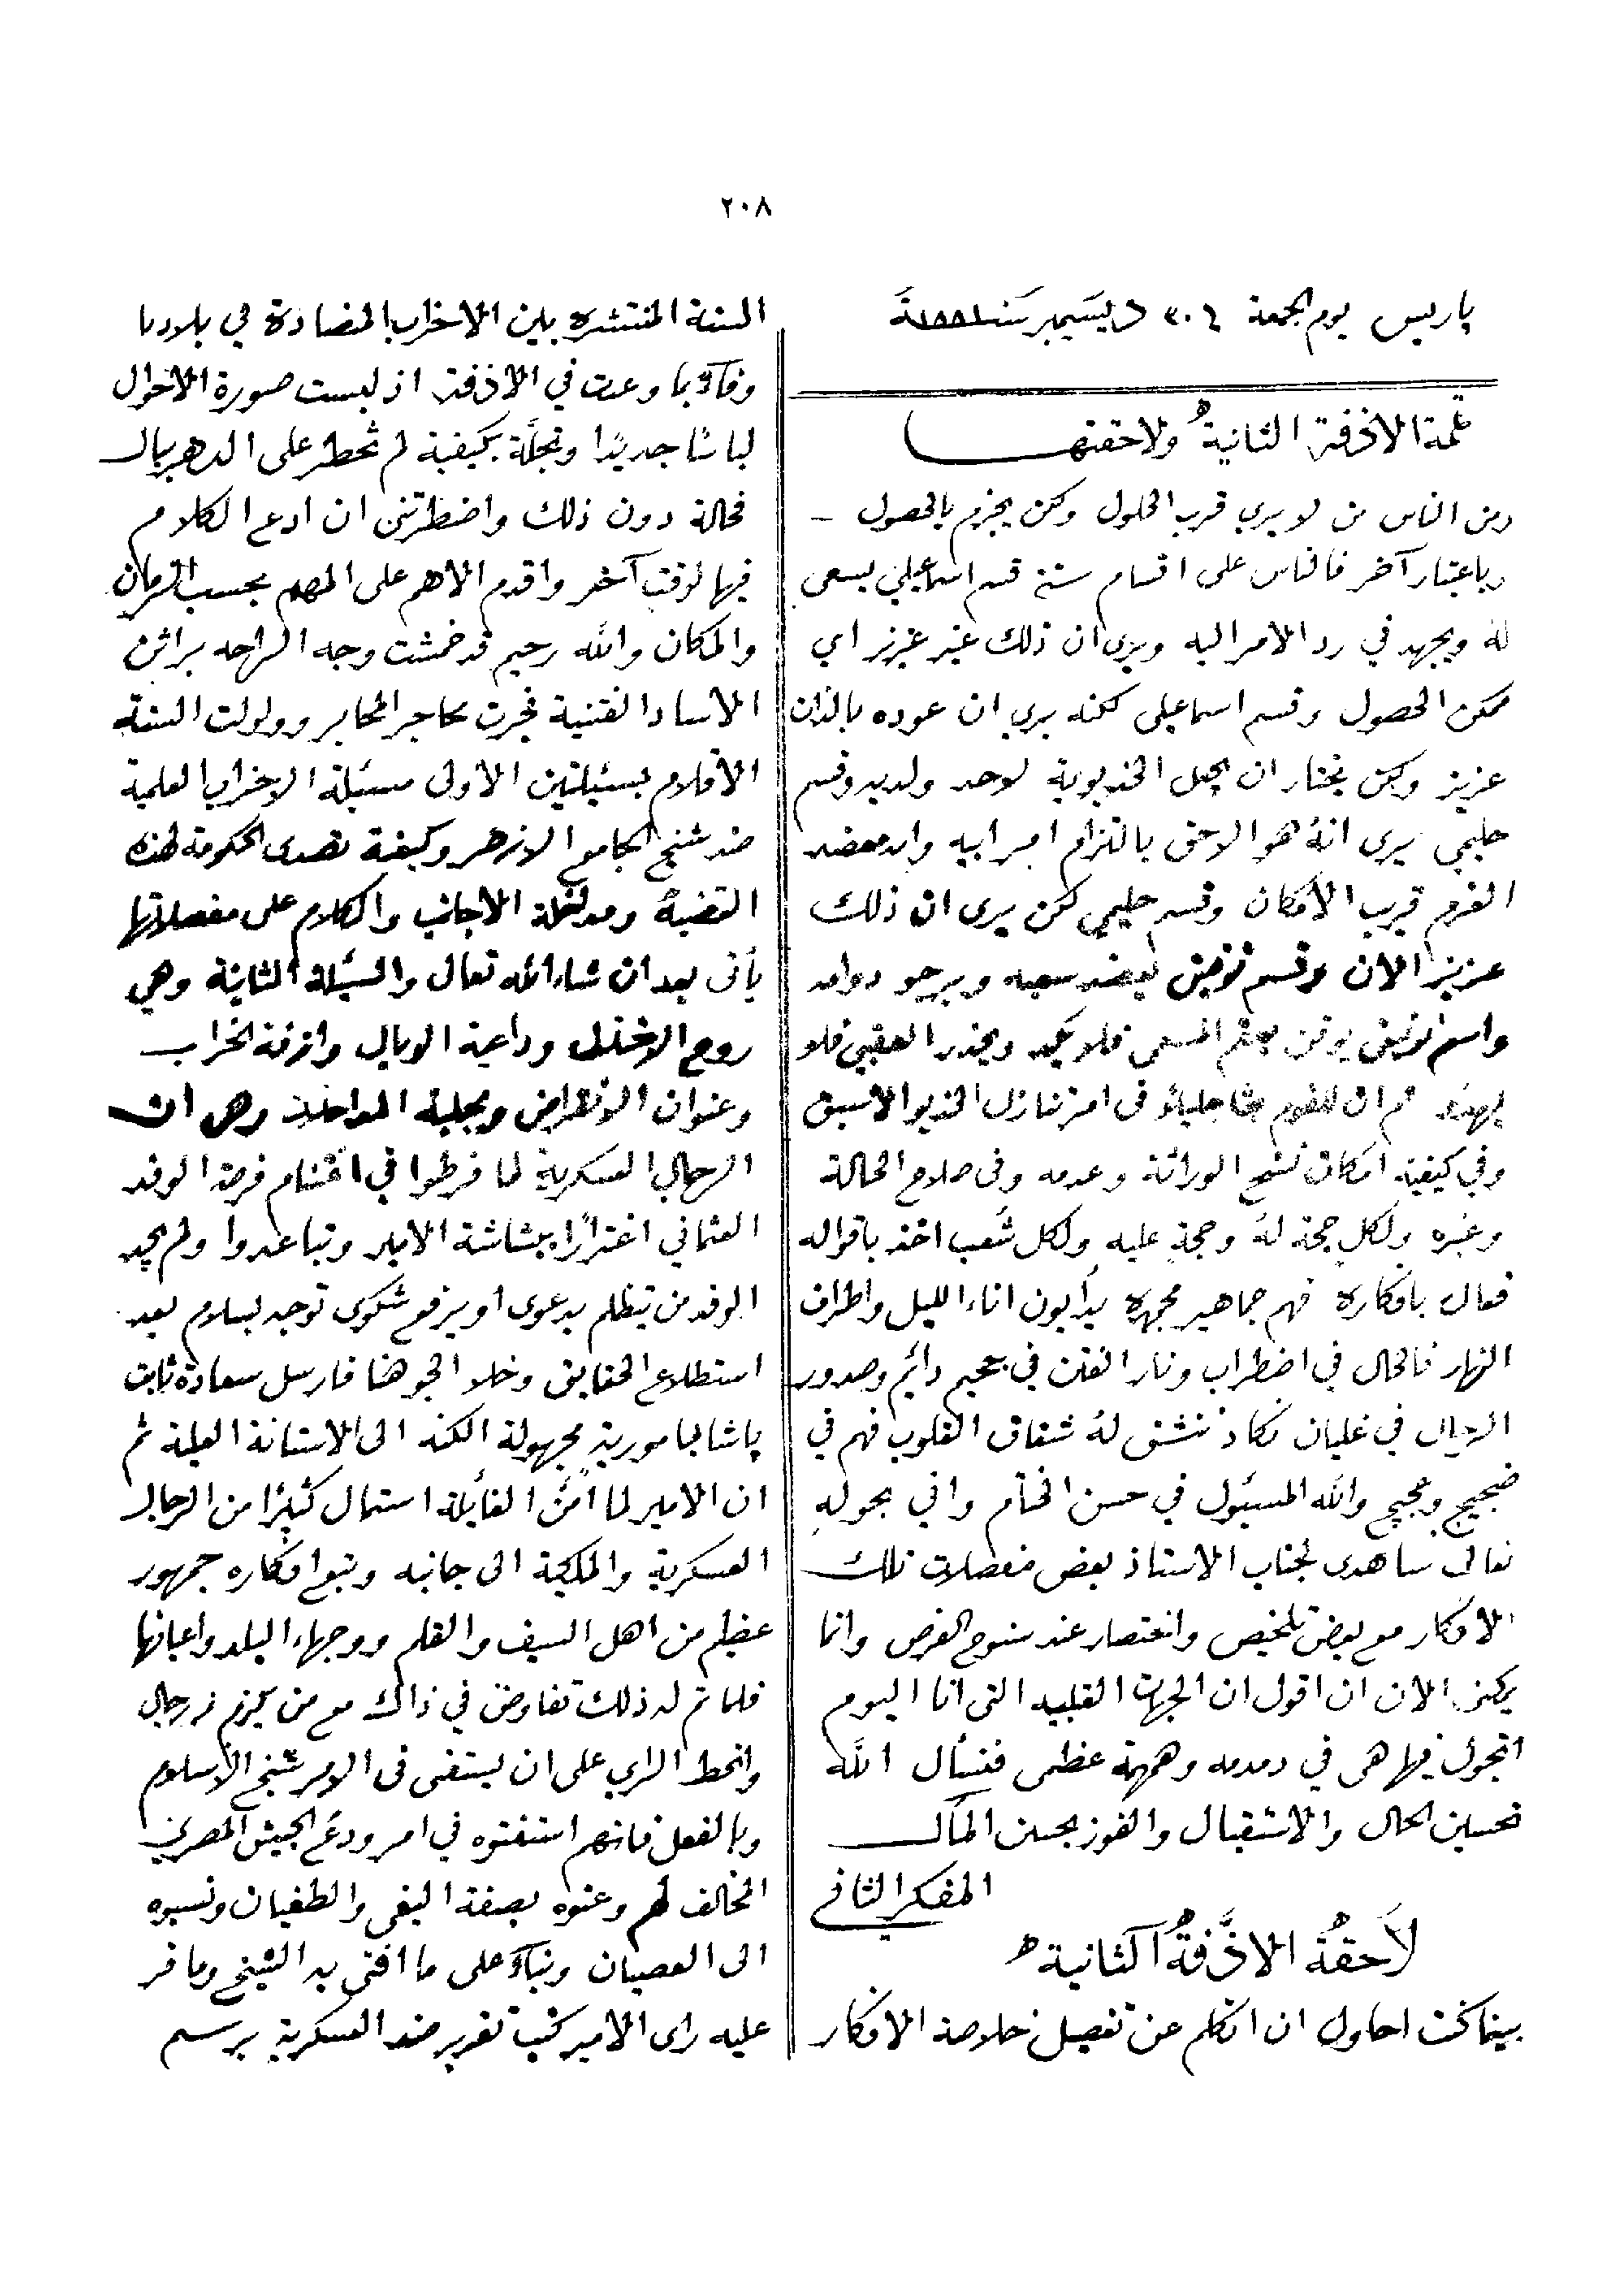 ٢٠٨
باريس يوم الجمعة ٣٠ ديسمبر سنة ١٨٨١
تتمة الازفة الثانية ولاحقتها
ومن الناس من لا يري قرب الحلول ولكن يجزم بالحصول –
وباعتبار آخر فالناس على اقسام ستة قسم اسماعيلي يسعى
له ويجهد في رد الامر اليه ويرى ان ذلك غير عزيز اي
ممكن الحصول وقسم اسماعيلي لكنه يري ان عوده بالذات
عزيز ولكن يختار ان يجعل الخديوية لاحد ولديه وقسم
حليمي يرى انه هو الاحق بالتزام امر ابيه وانه معضد
العزم قريب الامكان وقسم حليمي لكن يرى ان ذلك
عزيز الان وقسم توفيق يعضد سعيه ويرجو دوامه
واسم توفيق يوقن بعقم المسعى فلا يجد ويحذر العقبى فلا
يهذو ثم ان للقوم بحثا جليلا في امر تنازل الخديو الاسبق
وفي كيفية امكان فسخ الوراثة وعدمه وفي صلاح الحالة
وغيره ولكل حجة له وحجة عليه ولكل شعب اخذ باقواله
فعال بافكاره فهم جماهير مجمهرة يدأبون اناء الليل واطراف
النهار فالحال في اضطراب ونار الفتن في جحيم دائم وصدور
الرجال في غليان تكاد تنشق له شغاف القلوب فهم في
ضجيج وعجيج والله المسئول في حسن الختام واني بحوله
تعالى ساهدى لجناب الاستاذ بعض مفصلات تلك
الافكار مع بعض تلخيص واختصار عند سنوح الفرص وانما
يمكنني الان ان اقول ان الجهات القبليه التى انا اليوم
اتجول فيها هى في دمدمه وهمهمة عظمى فنسأل الله
تحسين الحال والاستقبال والفوز بحسن المآل
المفكر الثاني
لاحقة الازفة الثانية
بينما كنت احاول ان اتكلم عن تفصيل خلاصة الافكار
الستة المنتشره بين الاحزاب المتضادة في بلادنا
وفآءً بما وعدت في الازفة اذ لبست صورة الاحوال
لباسًا جديدًا وتجلَّة بكيفية لم تخطر على الدهر ببال
فحالة دون ذلك واضطرتنى ان ادع الكلام
فيها لوقت آخر واقدم الاهم على المهم بحسب الزمان
والمكان والله رحيم قد خمشت وجه الراحه براثن
الأساد الفتنية فجرت محاجر المحابر وولولت السنة
الاقلام بمسئلتين الأولى مسئلة الاحزاب العلمية
ضد شيخ الجامع الازهر وكيفية تصدى الحكومة لهذه
القضية ومدخلة الاجانب والكلام على مفصلاتها
يأتى بعد ان شاء الله تعالى والمسئلة الثانية وهي
روح الاختلال وداعية الوبال وازفة الخراب
وعنوان الانقراض ومجلبة المداخلات وهى ان
الرجال العسكرية لما فرطوا في اغتنام فرصة الوفد
العثماني اغترارًا ببشاشة الامير وتباعدوا ولم يجد
الوفد من يتظلم بدعوى او يرفع شكوى توجه بسلام بعد
استطلاع الحقايق وخلا الجو هنا فارسل سعادة ثابت
باشا لمامورية مجهولة الكنه الى الاستانة العلية ثم
ان الامير لما أمنَّ الغأيلة استمال كثيرًا من الرجال
العسكرية والملكية الى جانبه وتبع افكاره جمهور
عظيم من اهل السيف والقلم ووجهاء البلد واعيانها
فلما تم له ذلك تفاوض في ذاك مع من يلزم من رجال
وانحط الراي على ان يستفتى فى الامر شيخ الاسلام
وبالفعل فانهم استفتوه في امر ودعم الجيش المصري
المخالف لهم وعنوه بصفة البغى والطغيان ونسبوه
الى العصيان وبنآءً على ما افتى به الشيخ وما قر
عليه راى الامير كتب تقرير ضد العسكرية برسم